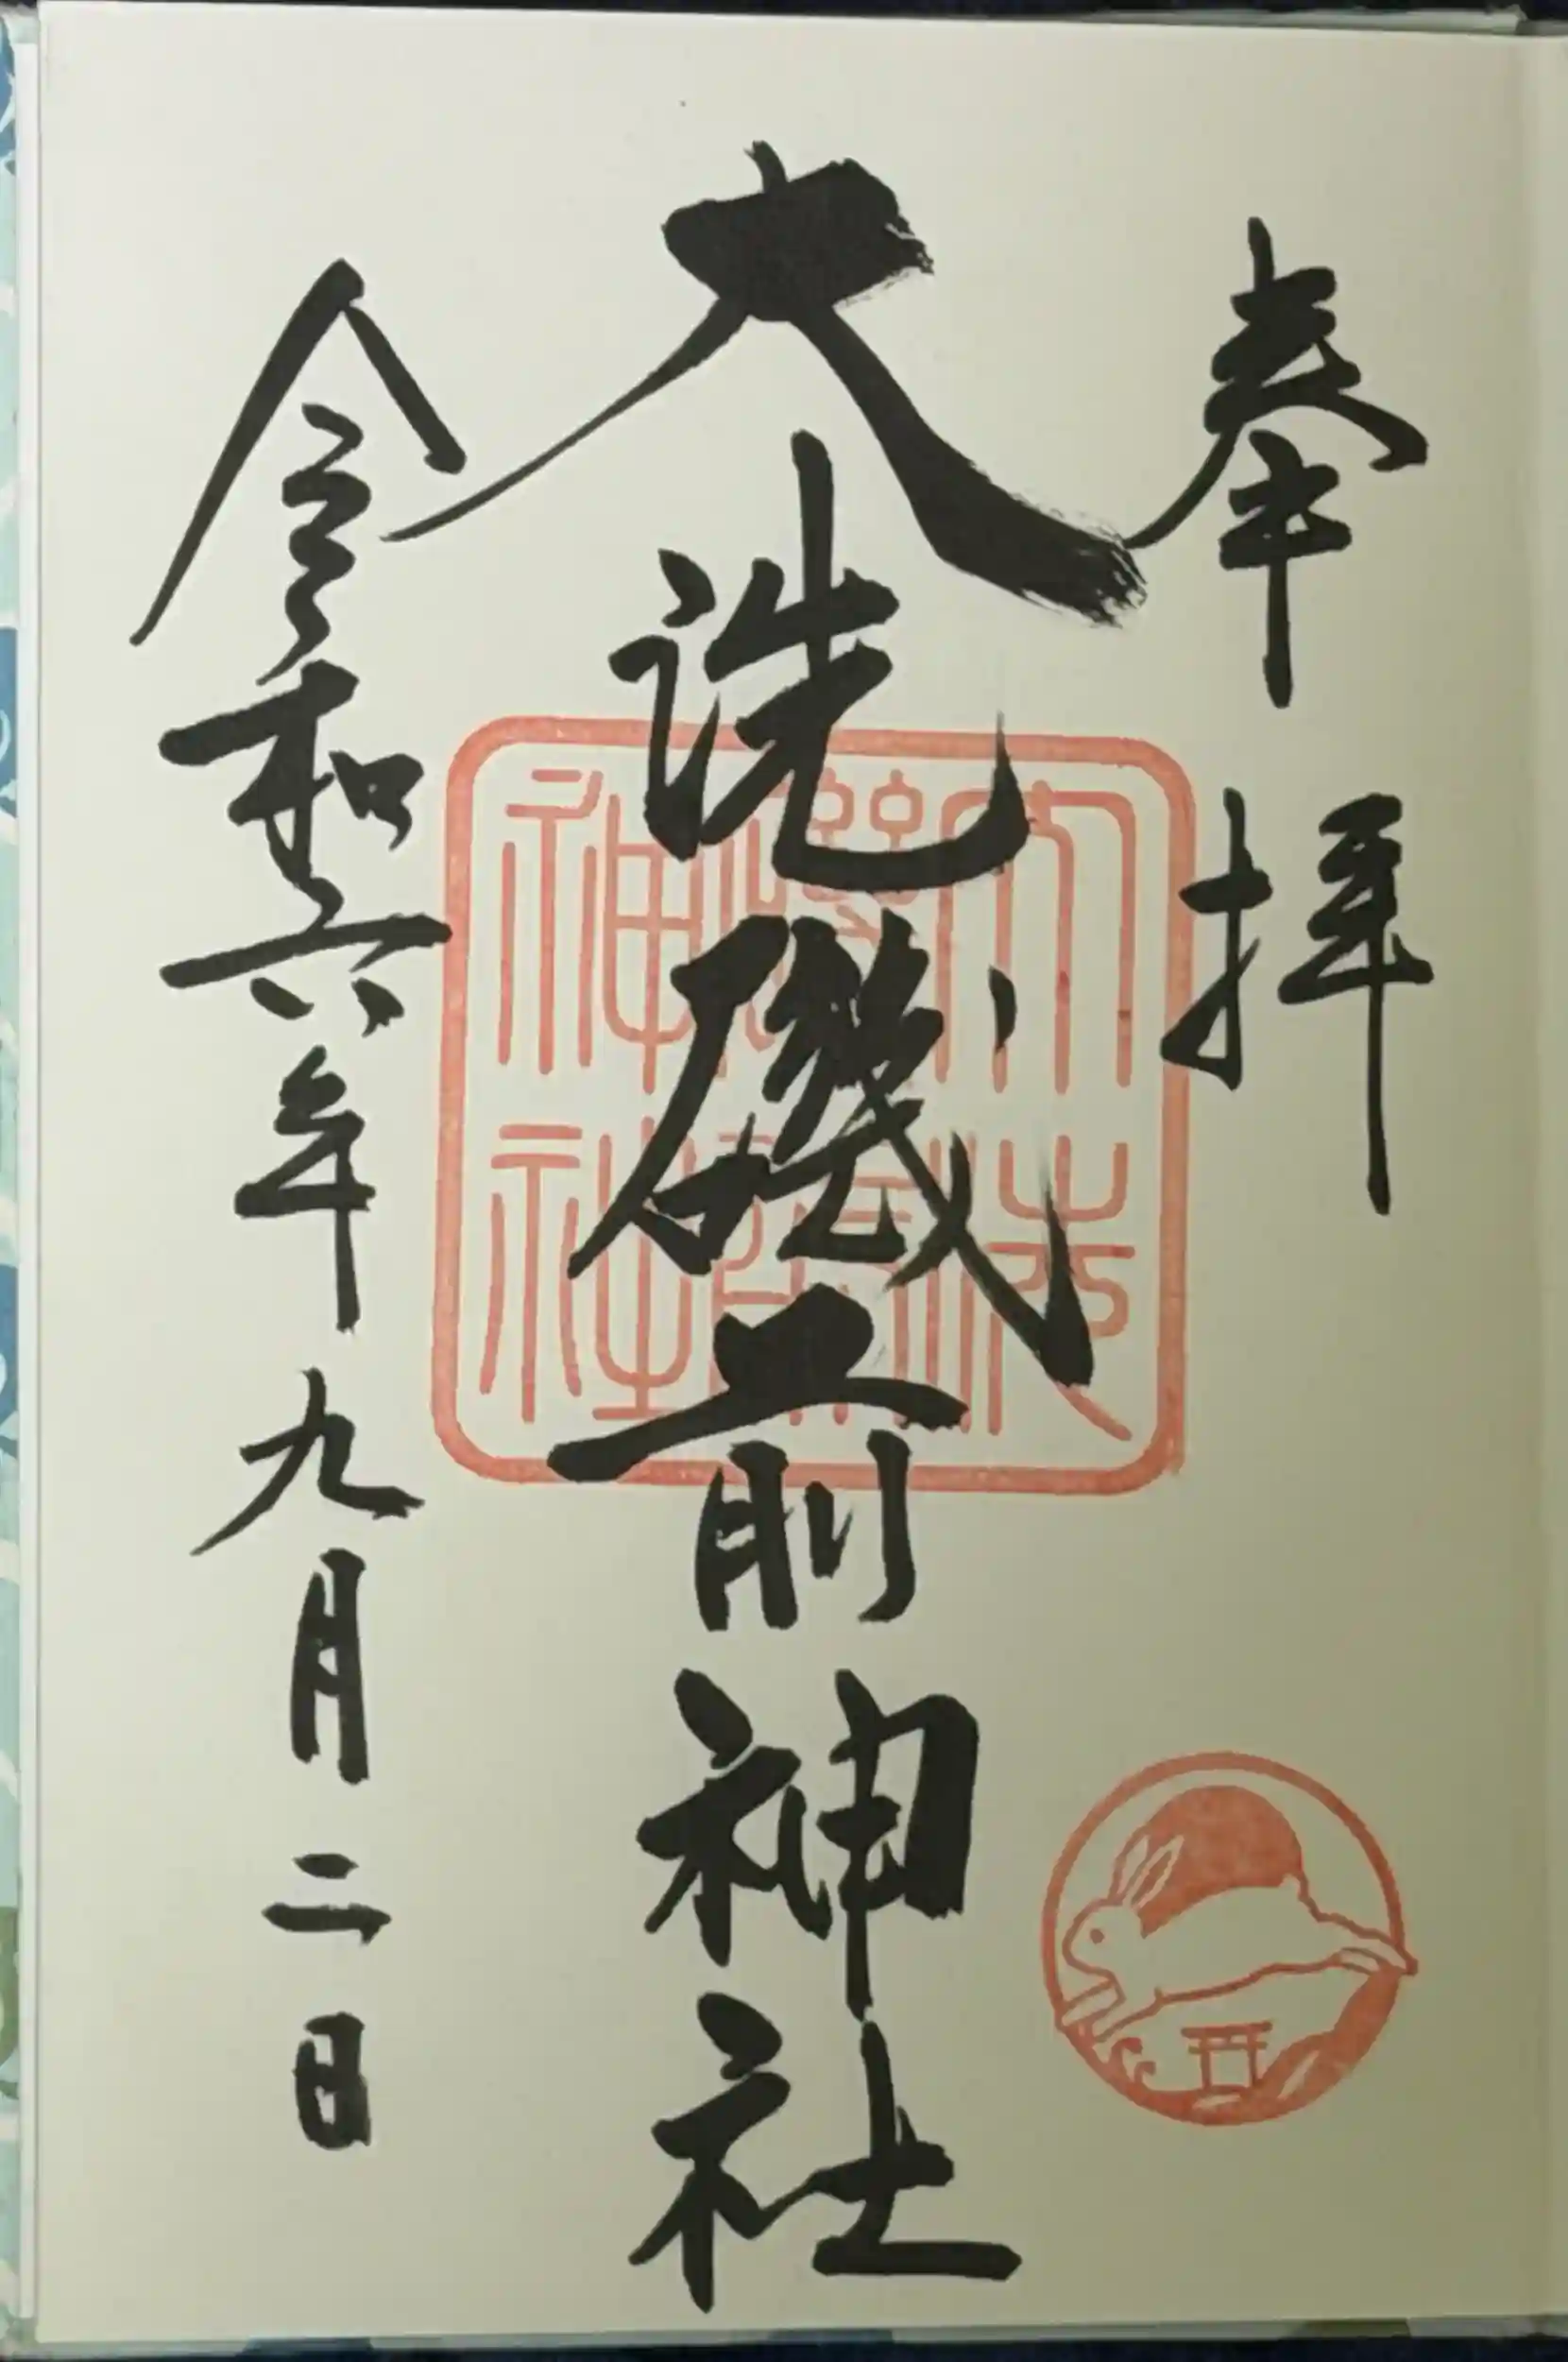 奉拝
大洗磯前神社
大洗磯前神社
令和六年九月二日